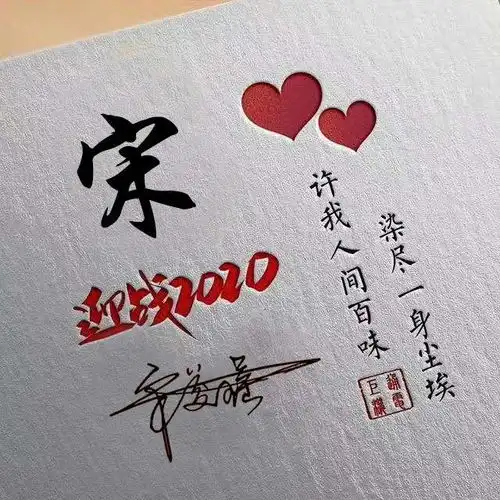 宋
迎战2020
染尽一身尘埃
许我人间百味